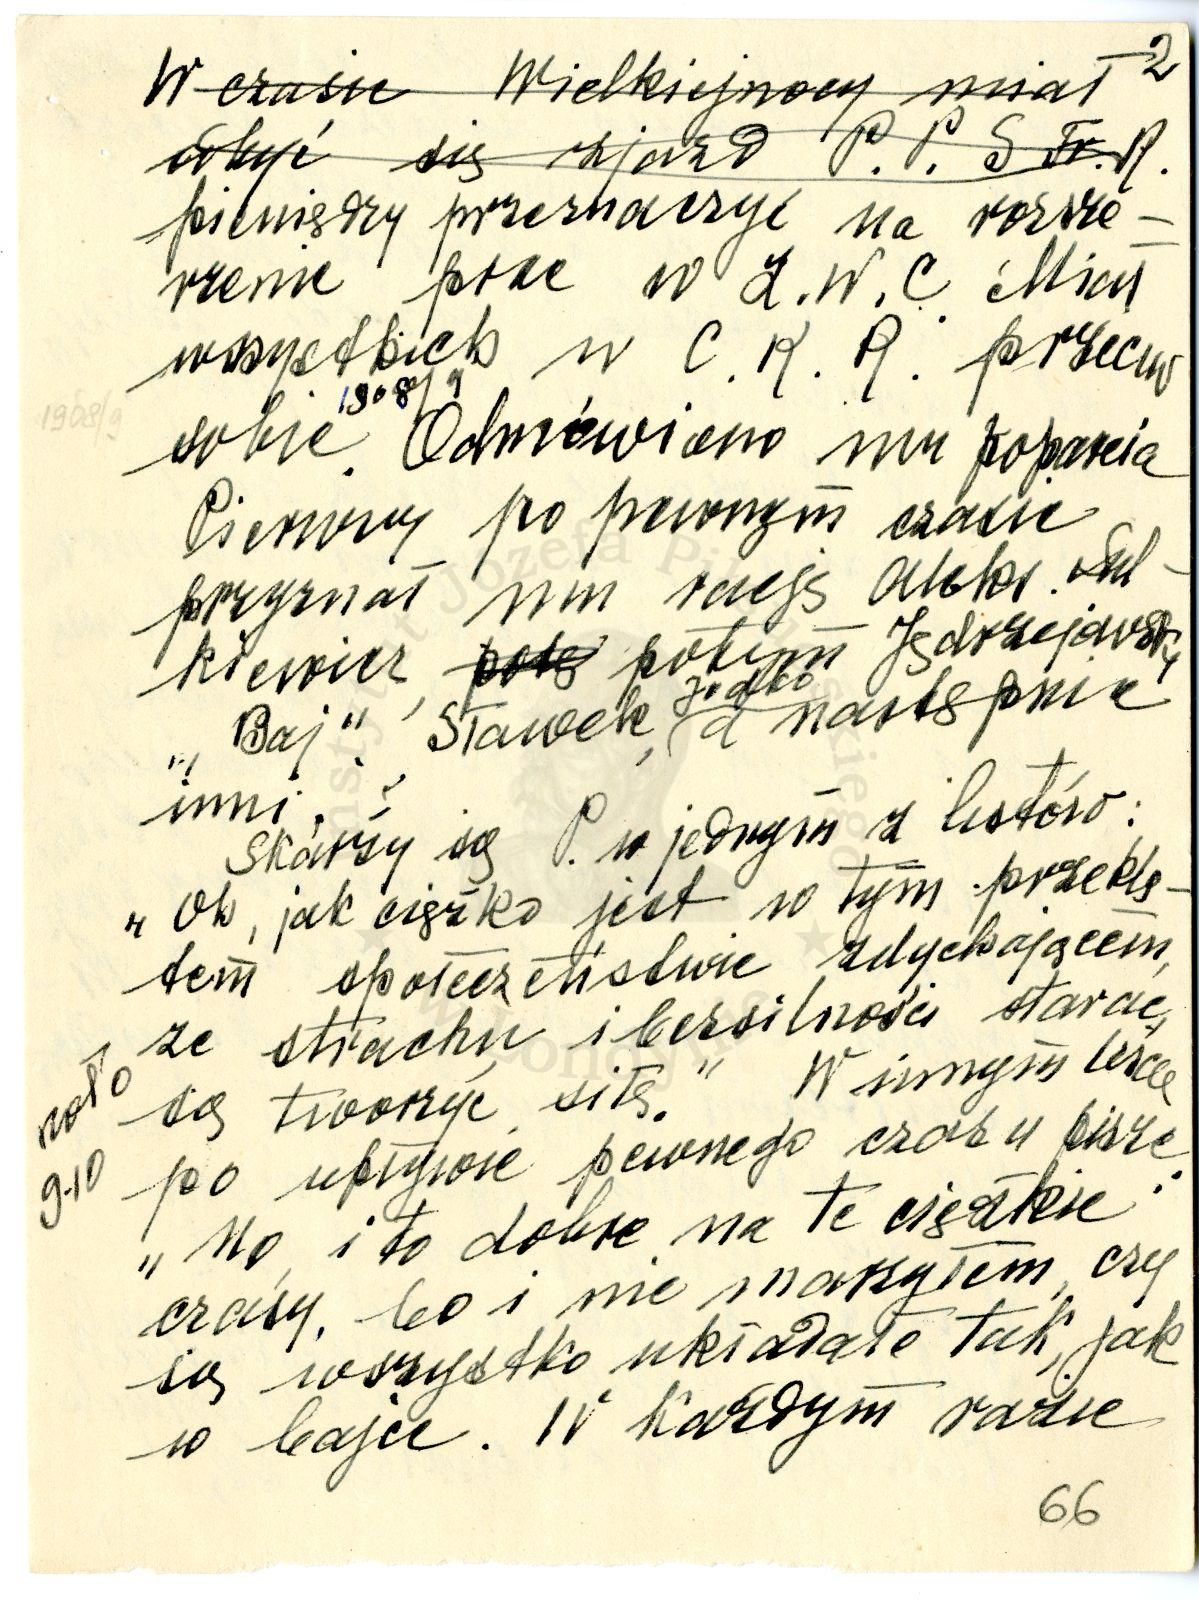 2
W czasie Wielkiejnocy miał
odbyć się zjazd P. P. S Fr. R.
pieniędzy przeznaczyć na rozsze-
rzenie prac w Z. W. C. Miał
wszystkich w C. K. R. przeciw
1908/9
1908/9
sobie. Odmówiono mu poparcia
Pierwszy po pewnym czasie
przyznał mu rację Aleks. Sul-
kiewicz, potem Jędrzejowski
Jodko
„Baj", Sławek, a następnie
inni.
Skarży się P. w jednym z listów:
„Oh, jak ciężko jest w tym przeklę-
tem społeczeństwie zdychającem,
ze strachu i bezsilności starać
się tworzyć siłę." W innym liście
9-10
po upływie pewnego czasu pisze:
„No, i to dobre na te ciężkie
czasy, bo i nie marzyłem, czy
się wszystko układało tak, jak
w bajce. W każdym razie
66
Instytut Józefa Piłsudskiego
w Londynie